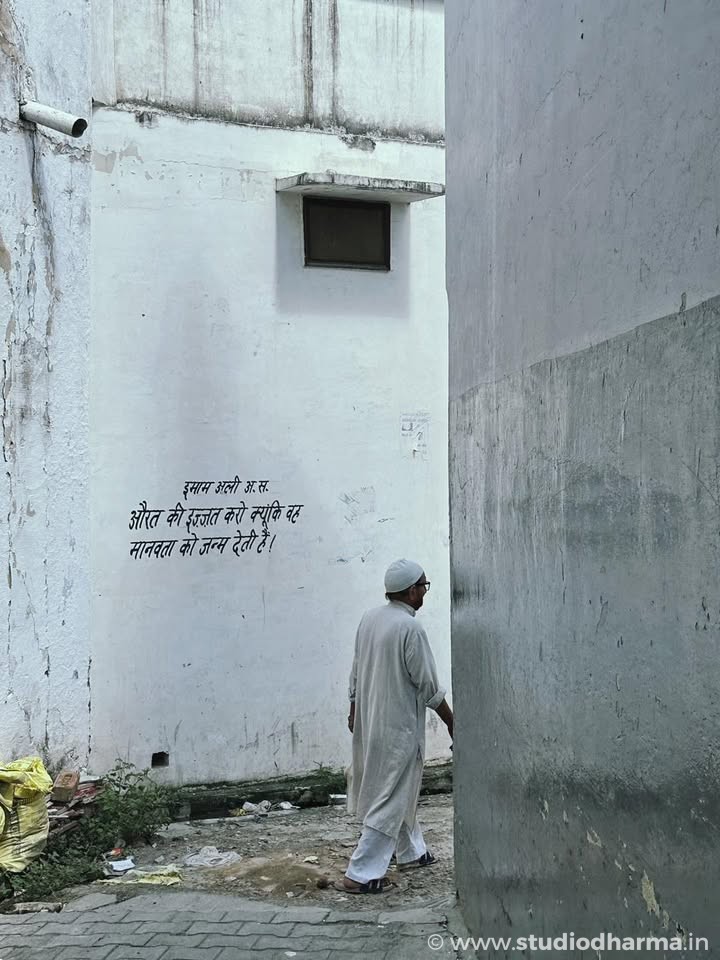 इमाम अली अ.स.
औरत की इज़्ज़त करो क्यूंकि वह
मानवता को जन्म देती है!
© www.studiodharma.in